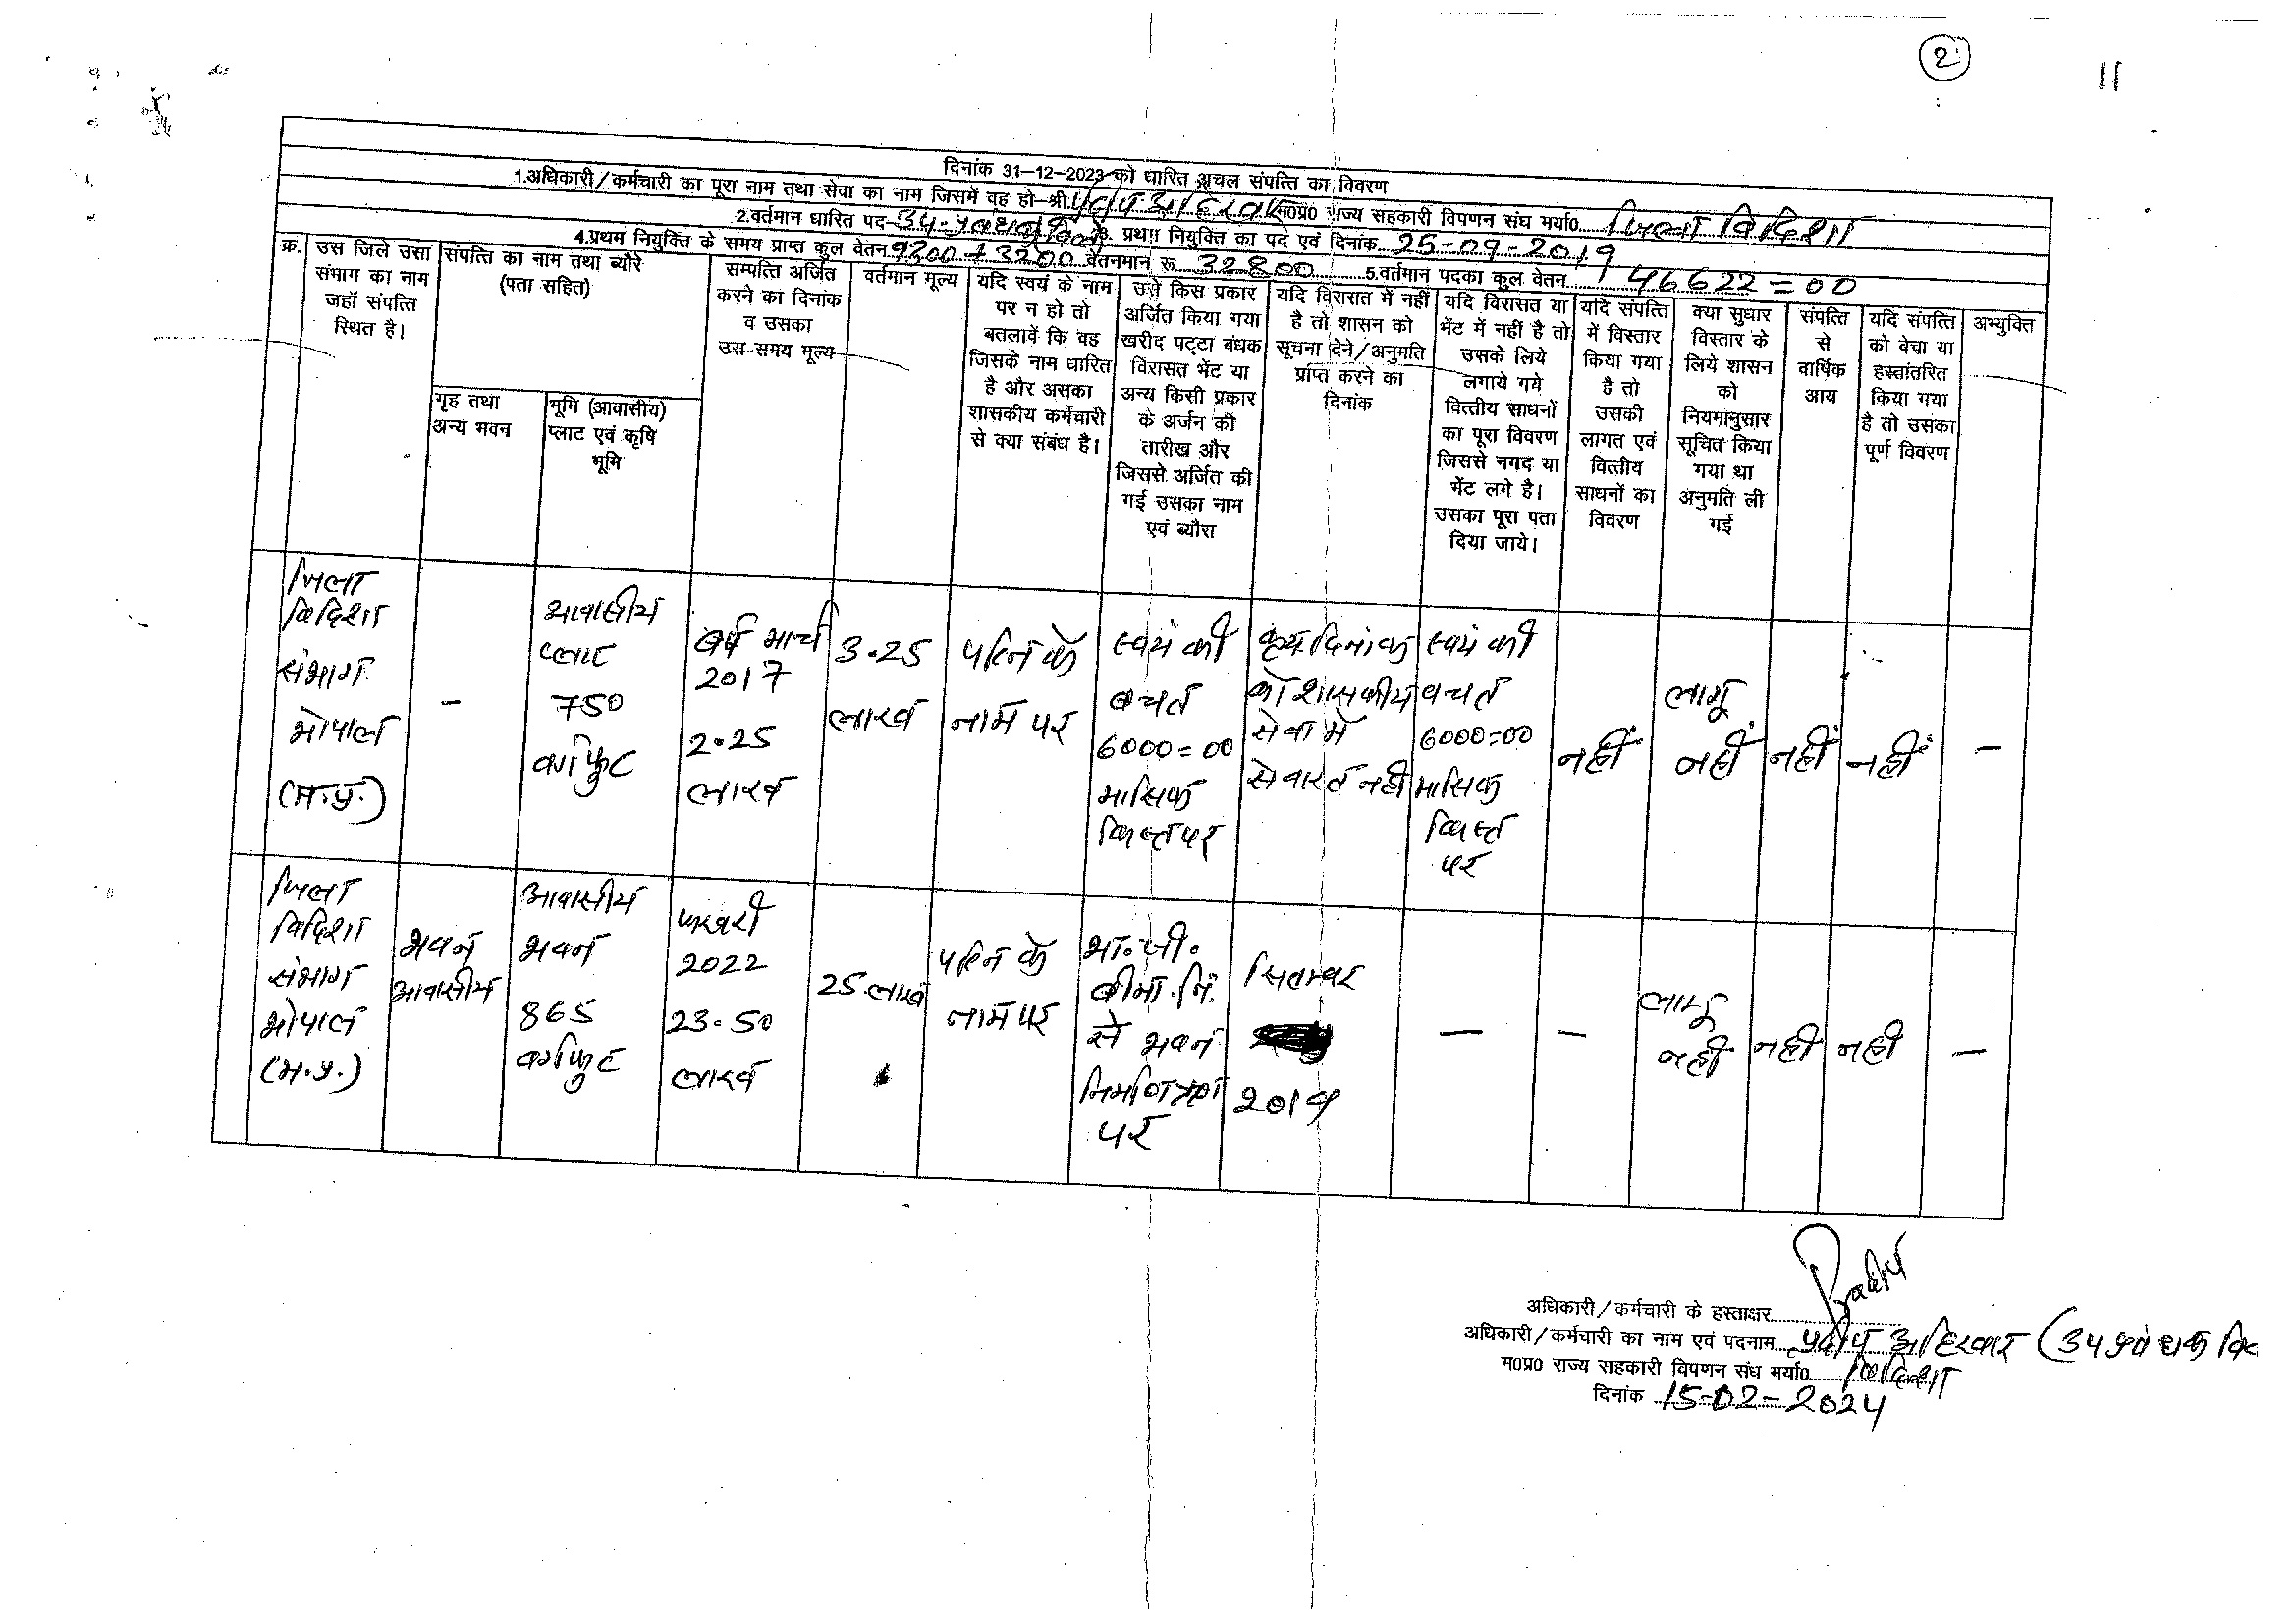 2
11
दिनांक 31-12-2023 को धारित अचल संपत्ति का विवरण
1.अधिकारी/कर्मचारी का पूरा नाम तथा सेवा का नाम जिसमें वह हो श्री प्रदीप अहिरवार म0प्र0 राज्य सहकारी विपणन संघ मर्या0. जिला विदिशा
2.वर्तमान धारित पद उप-प्रबंधक वित्त 3. प्रथम नियुक्ति का पद एवं दिनांक 25-09-2019
4.प्रथम नियुक्ति के समय प्राप्त कुल वेतन 9200+3200 वेतनमान रू 32800 5.वर्तमान पदका कुल वेतन 46622=00
क्र.
उस जिले उसा
संभाग का नाम
जहॉ संपत्ति
स्थित है।
संपत्ति का नाम तथा ब्यौरे
(पता सहित)
गृह तथा
अन्य भवन
भूमि (आवासीय)
प्लाट एवं कृषि
भूमि
सम्पत्ति अर्जित
करने का दिनांक
व उसका
उस समय मूल्य
वर्तमान मूल्य
यदि स्वयं के नाम
पर न हो तो
बतलावें कि वह
जिसके नाम धारित
है और असका
शासकीय कर्मचारी
से क्या संबंध है।
उसे किस प्रकार
अर्जित किया गया
खरीद पट्टा बंधक
विरासत भेंट या
अन्य किसी प्रकार
के अर्जन की
तारीख और
जिससे अर्जित की
गई उसका नाम
एवं ब्यौरा
यदि विरासत में नहीं
है तो शासन को
सूचना देने/अनुमति
प्राप्त करने का
दिनांक
यदि विरासत या
भेंट में नहीं है तो
उसके लिये
लगाये गये
वित्तीय साधनों
का पूरा विवरण
जिससे नगद या
भेंट लगे है।
उसका पूरा पता
दिया जाये।
यदि संपत्ति
में विस्तार
किया गया
है तो
उसकी
लागत एवं
वित्तीय
साधनों का
विवरण
क्या सुधार
विस्तार के
लिये शासन
को
नियमानुसार
सूचित किया
गया था
अनुमति ली
गई
संपत्ति
से
वार्षिक
आय
यदि संपत्ति
को वेचा या
हस्तांतरित
किया गया
है तो उसका
पूर्ण विवरण
अभ्युक्ति
जिला
विदिशा
संभाग
भोपाल
(म.प्र.)
-
आवासीय
प्लाट
750
वर्गफुट
वर्ष मार्च
2017
2.25
लाख
3.25
लाख
पत्नि के
नाम पर
स्वयं की
बचत
6000=00
मासिक
किस्त पर
क्रय दिनांक
को शासकीय
सेवा में
सेवारत नहीं
स्वयं की
बचत
6000=00
मासिक
किस्त
पर
नहीं
लागू
नहीं
नहीं
नहीं
-
जिला
विदिशा
संभाग
भोपाल
(म.प्र.)
भवन
आवासीय
आवासीय
भवन
865
वर्गफुट
फरवरी
2022
23.50
लाख
25 लाख
पत्नि के
नाम पर
भा.जी.
बीमा.नि.
से भवन
निर्माण ऋण
पर
सितम्बर
2019
-
-
लागू
नहीं
नहीं
नहीं
-
अधिकारी/कर्मचारी के हस्ताक्षर Pradip
अधिकारी/कर्मचारी का नाम एवं पदनाम प्रदीप अहिरवार (उप प्रबंधक वि
म0प्र0 राज्य सहकारी विपणन संघ मर्या0 विदिशा
दिनांक 15-02-2024